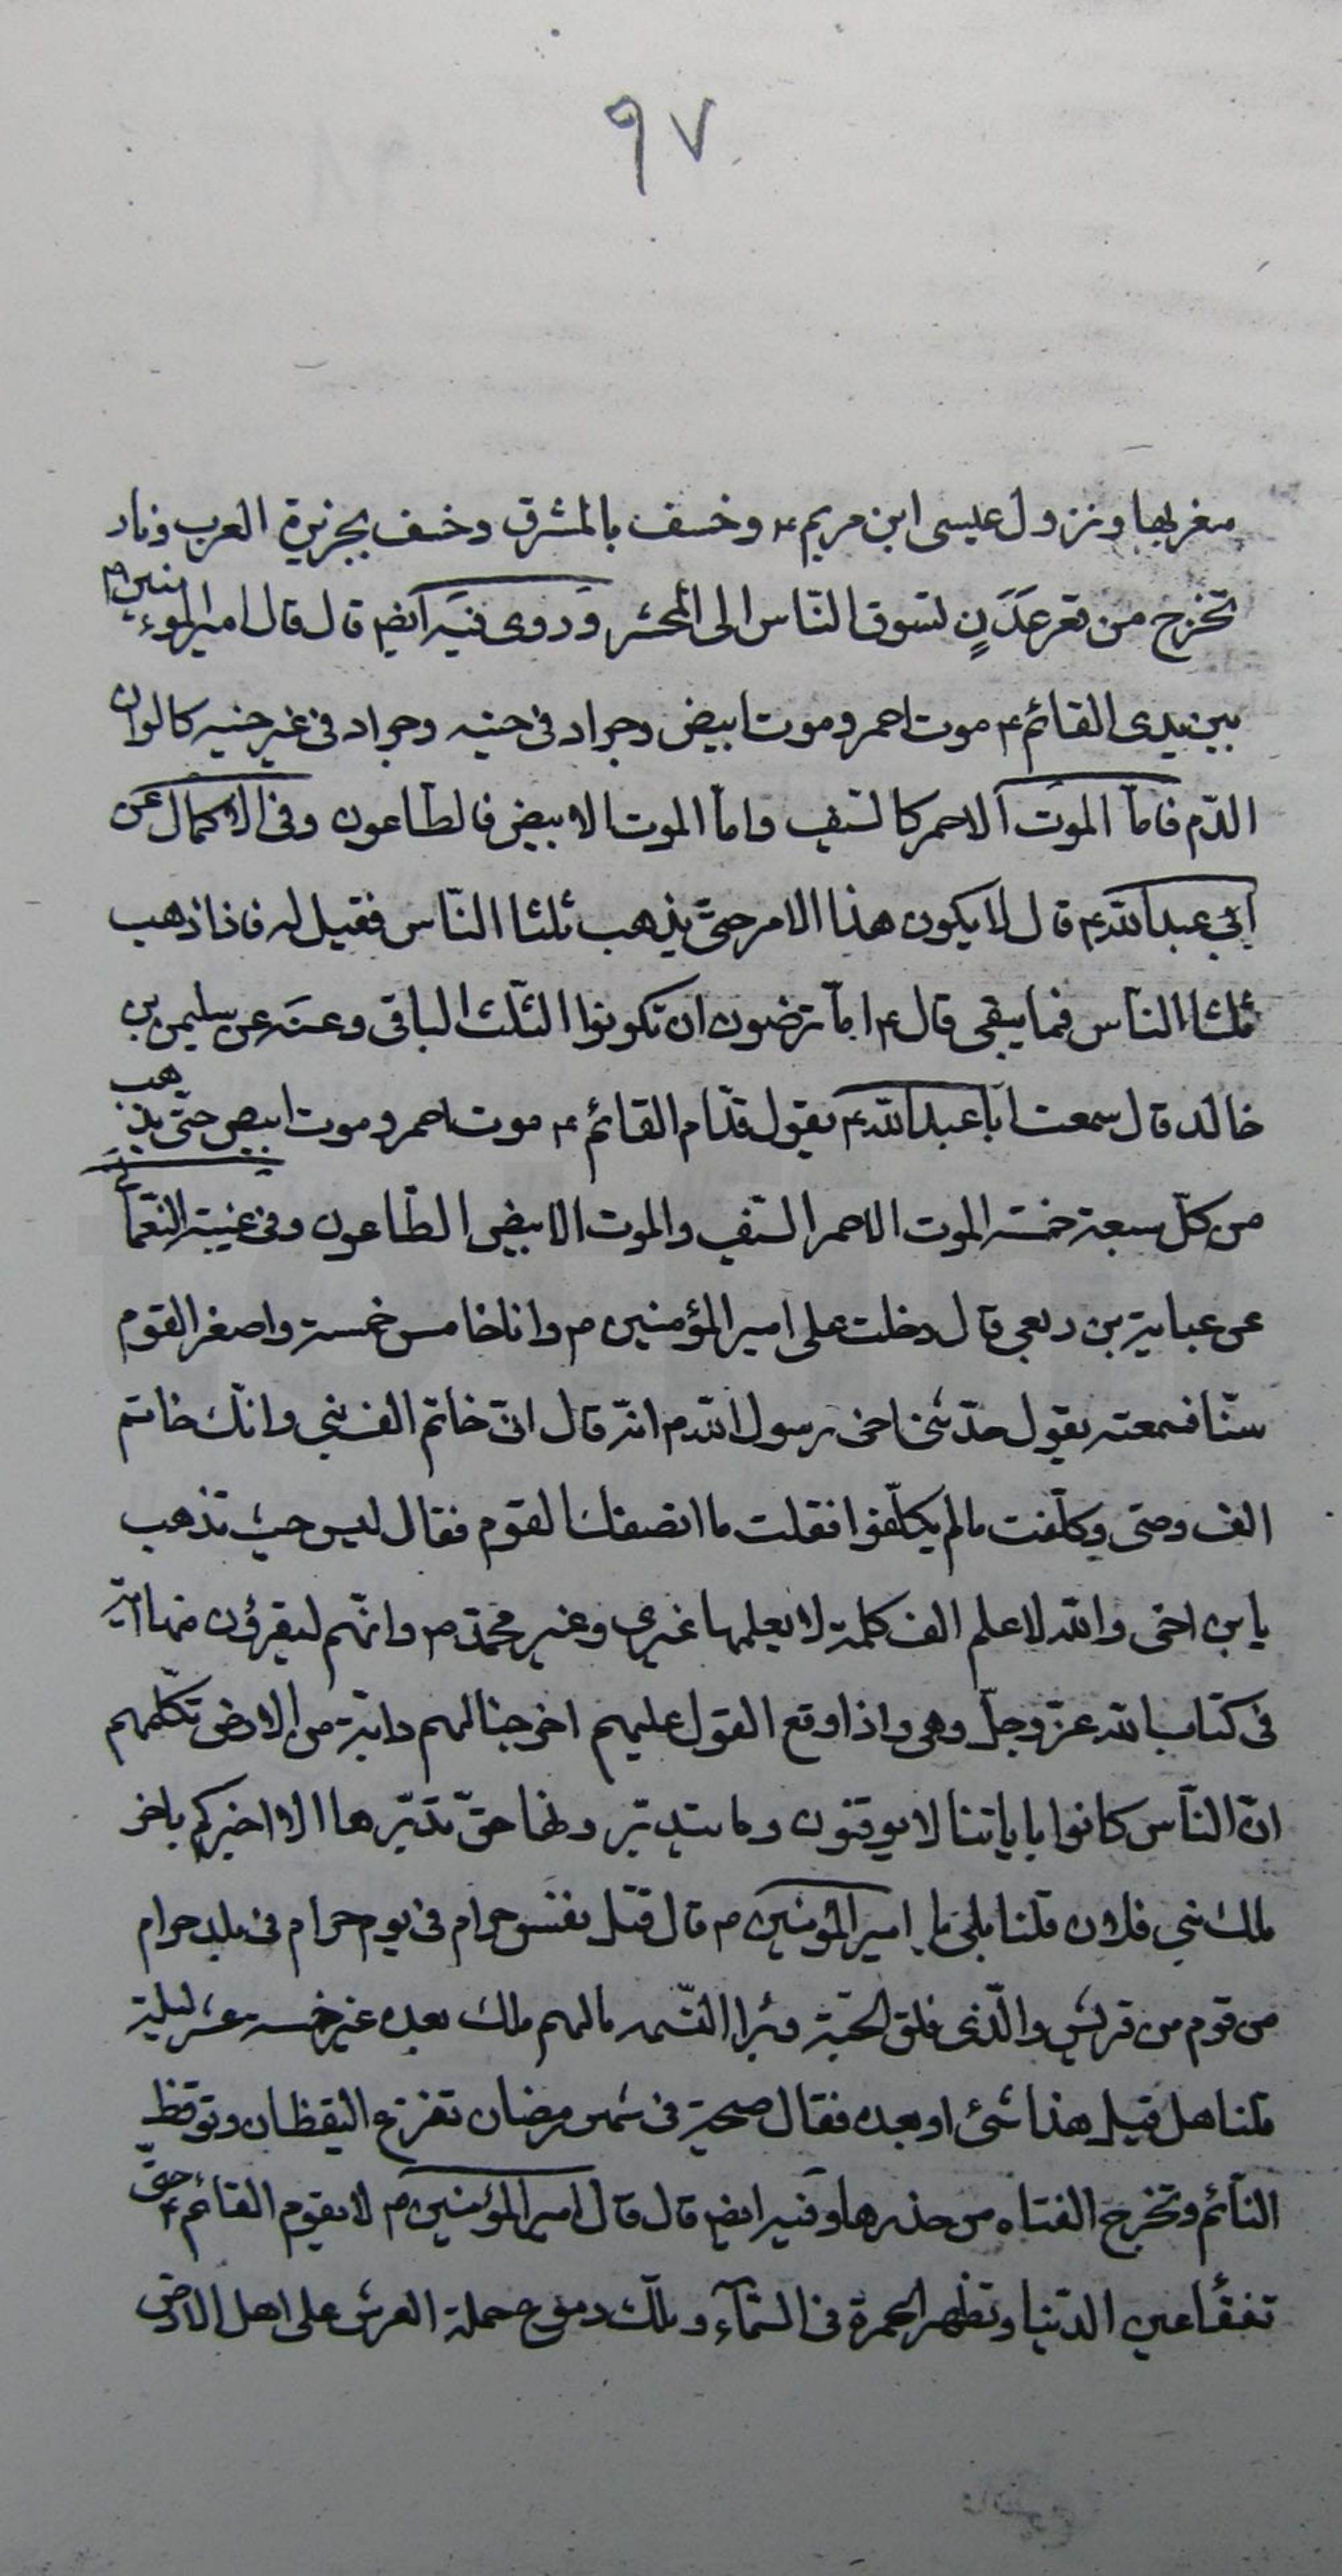 ٩٧
مغربها ونزول عيسى ابن مريم ع وخسف بالمشرق وخسف بجزيرة العرب ونار
تخرج من قعر عَدَنٍ تسوق النّاس الى المحشر وروى فيه ايضا قال قال امير المؤمنين م
بين يدى القائم ع موت احمر وموت ابيض وجراد فى حينه وجراد فى غير حينه كالوان
الدّم فامّا الموت الاحمر كالسّيف وامّا الموت الابيض فالطّاعون وفى الاكمال عن
ابى عبد الله ع قال لا يكون هذا الامر حتّى يذهب ثلثا النّاس فقيل له فاذا ذهب
ثلثا النّاس فما يبقى قال ع اما ترضون ان تكونوا الثّلث الباقى وعنه عن سليمن بن
خالد قال سمعت ابا عبد الله ع يقول قدّام القائم ع موت احمر وموت ابيض حتّى يذهب
من كلّ سبعة خمسة الموت الاحمر السّيف والموت الابيض الطّاعون وفى غيبة النّعمانى
عن عباية بن ربعى قال دخلت على امير المؤمنين م وانا خامس خمسة واصغر القوم
سنّا فسمعته يقول حدّثنى اخى رسول الله م انّه قال انّى خاتم الف نبى وانّك خاتم
الف وصى وكلّفت ما لم يكلّفوا فقلت ما انصفك القوم فقال ليس حيث تذهب
يابن اخى والله لاعلم الف كلمة لا يعلمها غيرى وغير محمّد م وانّهم ليقرؤن منها اية
فى كتاب الله عزّ وجلّ وهى واذا وقع القول عليهم اخرجنا لهم دابّة من الارض تكلّمهم
انّ النّاس كانوا باياتنا لا يوقنون وما يتدبّر ولها حقّ تدبّرها الا اخبركم باخر
ملك بنى فلان قلنا بلى يا امير المؤمنين م قال قتل نفس حرام فى يوم حرام فى بلد حرام
من قوم من قريش والّذى فلق الحبّة وبرا النّسمه ما لهم ملك بعده غير خمسة عشر ليلة
قلنا هل قبل هذا شئ او بعده فقال صيحة فى شهر رمضان تفزع اليقظان وتوقظ
النّائم وتخرج الفتاه من خدرها وفيه ايضا قال قال امير المؤمنين م لا يقوم القائم ع حتّى
تفقأ عين الدّنيا وتظهر الحمرة فى السّمآء وتلك دموع حملة العرش على اهل الارض